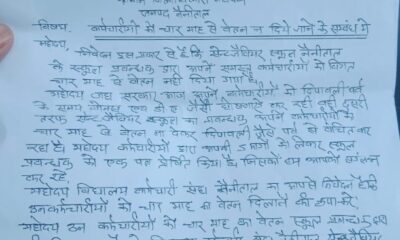 जनपद नैनीताल
विषय: कर्मचारीयों में चार माह से वेतन न दिये जाने के सबंध में
महोदय,
निवेदन इस प्रकार से है कि सेन्ट जेवियर स्कूल नैनीताल
के स्कूल प्रबन्धक द्वारा अपने समस्त कर्मचारीयों को विगत
चार माह से वेतन नहीं दिया गया है।
महोदय जहां सरकार आज अपने कर्मचारीयों को दिपावली पर्व
के समय बोनस एवं की घोषणाएं कर रही वहीं दूसरी
तरफ सेन्ट जेवियर स्कूल का प्रबन्धक अपने कर्मचारीयों के
चार माह से वेतन ना देकर दिपावली जैसे पर्व से वंचित कर
रहा है। महोदय कर्मचारीयों द्वारा अपनी मांगों को लेकर स्कूल
प्रबन्धक को एक पत्र प्रेषित किया है जिसको हम आपको संलग्न
कर रहे
महोदय विद्यालय कर्मचारी संघ नैनीताल का आपसे निवेदन है कि
उन कर्मचारीयों को चार माह का वेतन दिलाने की कृपा करें
महोदय उन कर्मचारीयों को चार माह का वेतन स्कूल प्रबन्धक द्वारा